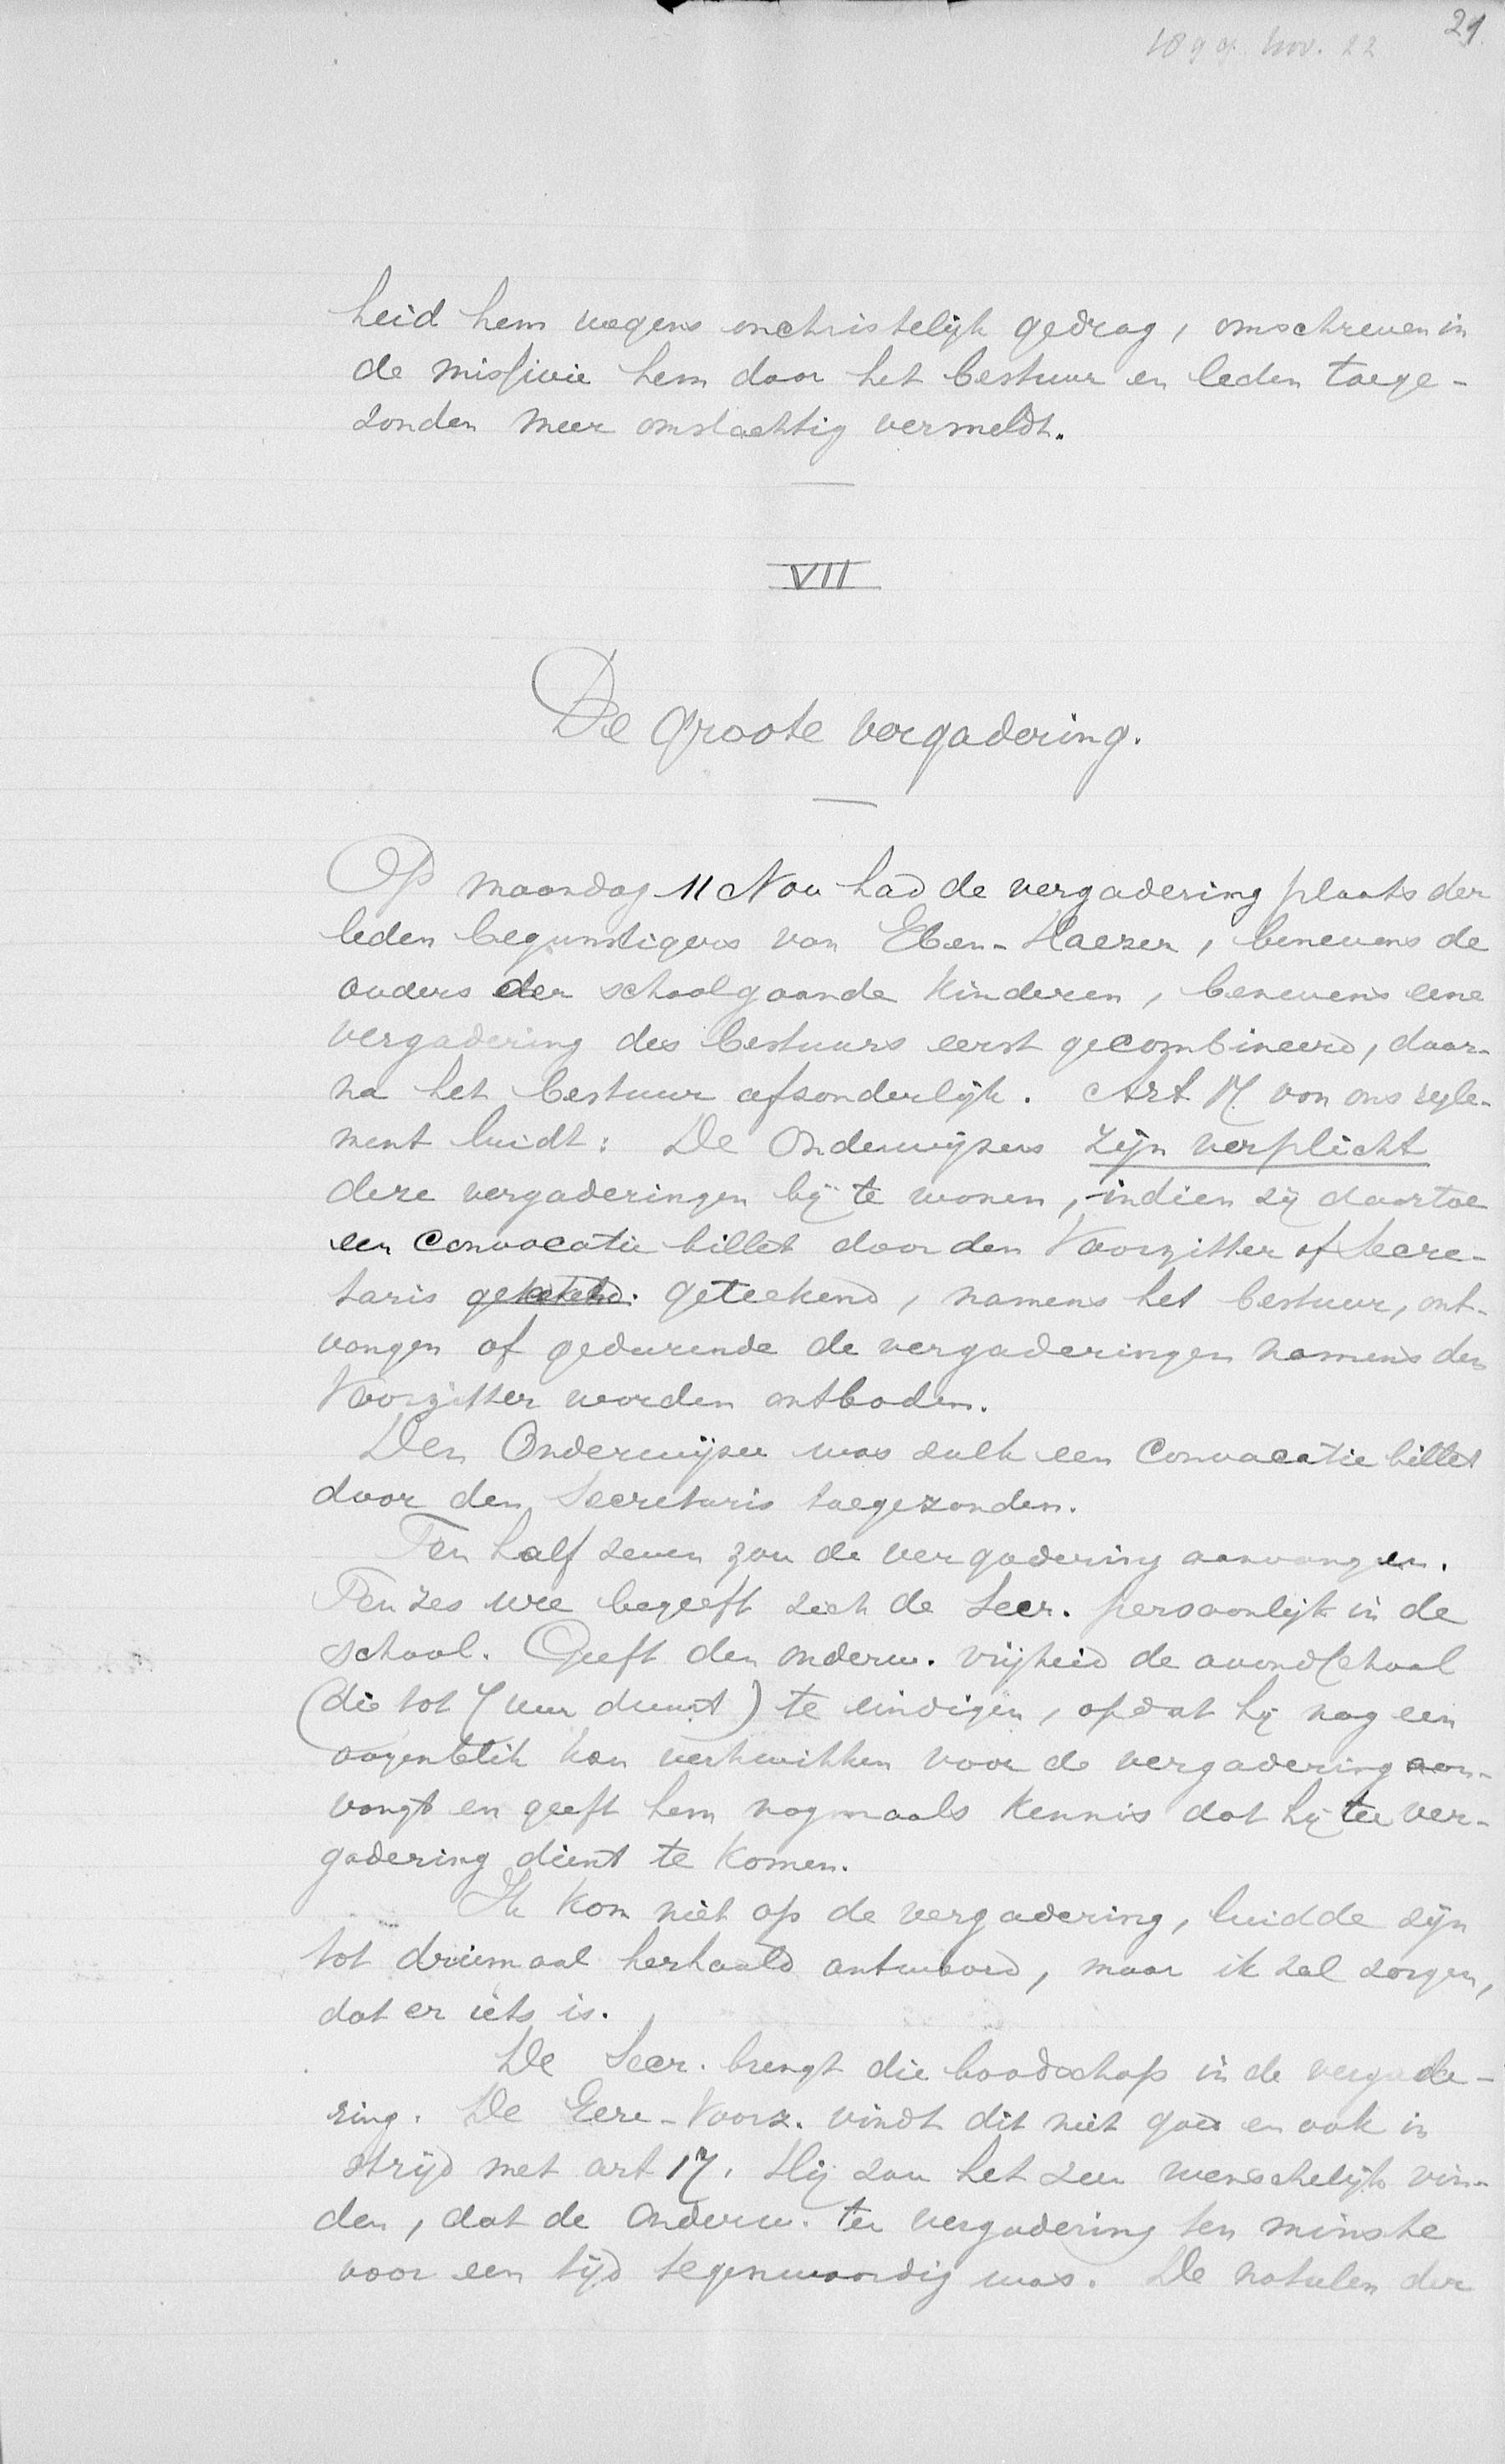 21
1899 Nov. 22
heid hem wegens onchristelijk gedrag, omschreven in
de missivie hem door het bestuur en leden toege-
zonden meer omslachtig vermeldt.
VII
De groote vergadering.
Op maandag 11 Nov had de vergadering plaats der
leden begunstigers van Eben-Haezer, benevens de
ouders der schoolgaande kinderen, benevens eene
vergadering des bestuurs eerst gecombineerd, daar-
na het bestuur afsonderlijk. Art 17 van ons regle-
ment luidt: De Onderwijzers zijn verplicht
deze vergaderingen bij te wonen, indien zij daartoe
een Convocatie billet door den Voorzitter of Secre-
taris geteekend, namens het bestuur, ont-
vangen of gedurende de vergaderingen namens den
Voorzitter worden ontboden.
Den Onderwijzer was zulk een Convocatie billet
door den Secretaris toegezonden.
Ten half zeven zou de vergadering aanvangen.
Ten zes ure begeeft zich de Secr. persoonlijk in de
school. Geeft den onderw. vrijheid de avondschool
(die tot 7 uur duurt) te eindigen, opdat hij nog een
oogenblik kan verkwikken voor de vergadering aan-
vangt en geeft hem nogmaals kennis dat hij ter ver-
gadering dient te komen.
Ik kom niet op de vergadering, luidde zijn
tot driemaal herhaald antwoord, maar ik zal zorgen,
dat er iets is.
De Secr. brengt die boodschap in de vergade-
ring. De Eere-Voorz. vindt dit niet goed en ook in
strijd met art 17. Hij zou het zeer wenschelijk vin-
den, dat de onderw. ter vergadering ten minste
voor een tijd tegenwoordig was. De notulen der